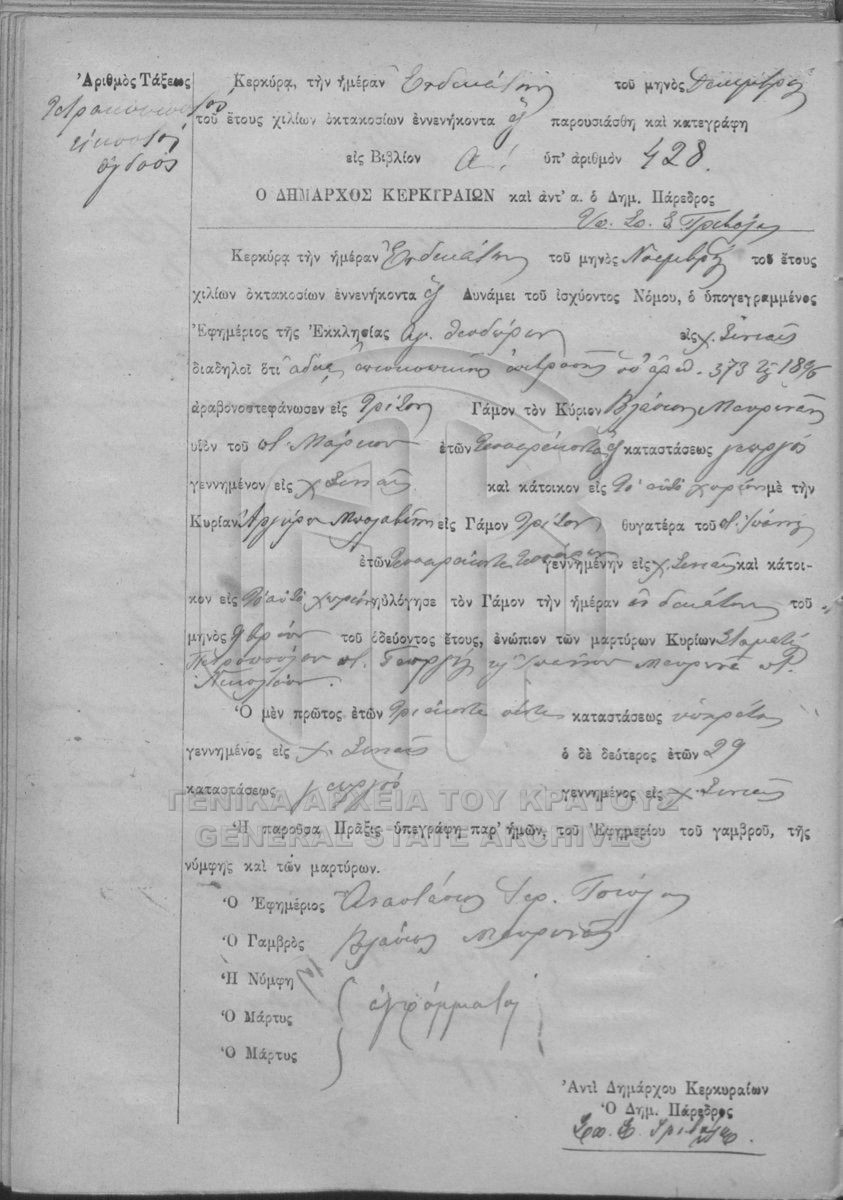 Ἀριθμὸς Τάξεως
Τετρακοσιοστὸς
εἰκοστὸς
ὄγδοος
Κερκύρᾳ, τὴν ἡμέραν Ἑνδεκάτην τοῦ μηνὸς Δεκεμβρίου
τοῦ ἔτους χιλίων ὀκτακοσίων ἐννενήκοντα ἓξ παρουσιάσθη καὶ κατεγράφη
εἰς Βιβλίον Α! ὑπ' ἀριθμὸν 428.
Ο ΔΗΜΑΡΧΟΣ ΚΕΡΚΥΡΑΙΩΝ καὶ ἀντ' α. ὁ Δημ. Πάρεδρος
Κερκύρᾳ τὴν ἡμέραν Ἑνδεκάτην τοῦ μηνὸς Νοεμβρίου τοῦ ἔτους
χιλίων ὀκτακοσίων ἐννενήκοντα ἓξ Δυνάμει τοῦ ἰσχύοντος Νόμου, ὁ ὑπογεγραμμένος
Ἐφημέριος τῆς Ἐκκλησίας Αγ. Θεοδώρου εἰς χ. Σινιὲς
διαδηλοῖ ὅτι ἀδείᾳ ἐπισκοπικῆς ἐπιτροπῆς ὑπ' ἀριθ. 373 τοῦ 1896
ἀραβονοστεφάνωσεν εἰς Τρίτον Γάμον τὸν Κύριον Βλάσιον Μαυρωνᾶν
υἱὸν τοῦ Μάρκου ἐτῶν Τεσσαράκοντα ἓξ καταστάσεως γεωργὸς
γεννημένον εἰς χ. Σινιὲς καὶ κάτοικον εἰς Τὸ αὐτὸ χωρίον μὲ τὴν
Κυρίαν Ἀργύρω εἰς Γάμον Τρίτον θυγατέρα τοῦ Ἰωάννη
ἐτῶν Τεσσαράκοντα Τεσσάρων γεννημένην εἰς χ. Σινιὲς καὶ κάτοι-
κον εἰς Τὸ αὐτὸ χωρίον ηὐλόγησε τὸν Γάμον τὴν ἡμέραν ἑνδεκάτην τοῦ
μηνὸς 9βρίου τοῦ ὁδεύοντος ἔτους, ἐνώπιον τῶν μαρτύρων Κυρίων Σταμάτη
Πετροπούλου Γεωργίου Ἰωάννου Μαυρωνᾶ
Νικολάου.
Ὁ μὲν πρῶτος ἐτῶν Τριάκοντα πέντε καταστάσεως
γεννημένος εἰς χ. Σινιὲς ὁ δὲ δεύτερος ἐτῶν 29
καταστάσεως γεωργὸς γεννημένος εἰς χ. Σινιὲς
ΓΕΝΙΚΑ ΑΡΧΕΙΑ ΤΟΥ ΚΡΑΤΟΥΣ
GENERAL STATE ARCHIVES
Ἡ παροῦσα Πρᾶξις ὑπεγράφη παρ' ἡμῶν, τοῦ Ἐφημερίου τοῦ γαμβροῦ, τῆς
νύμφης καὶ τῶν μαρτύρων.
Ὁ Ἐφημέριος Ἀναστάσιος Ἱερ.
Ὁ Γαμβρὸς Βλάσιος Μαυρωνᾶς
Ἡ Νύμφη
Ὁ Μάρτυς ἀγράμματοι
Ὁ Μάρτυς
Ἀντὶ Δημάρχου Κερκυραίων
Ὁ Δημ. Πάρεδρος